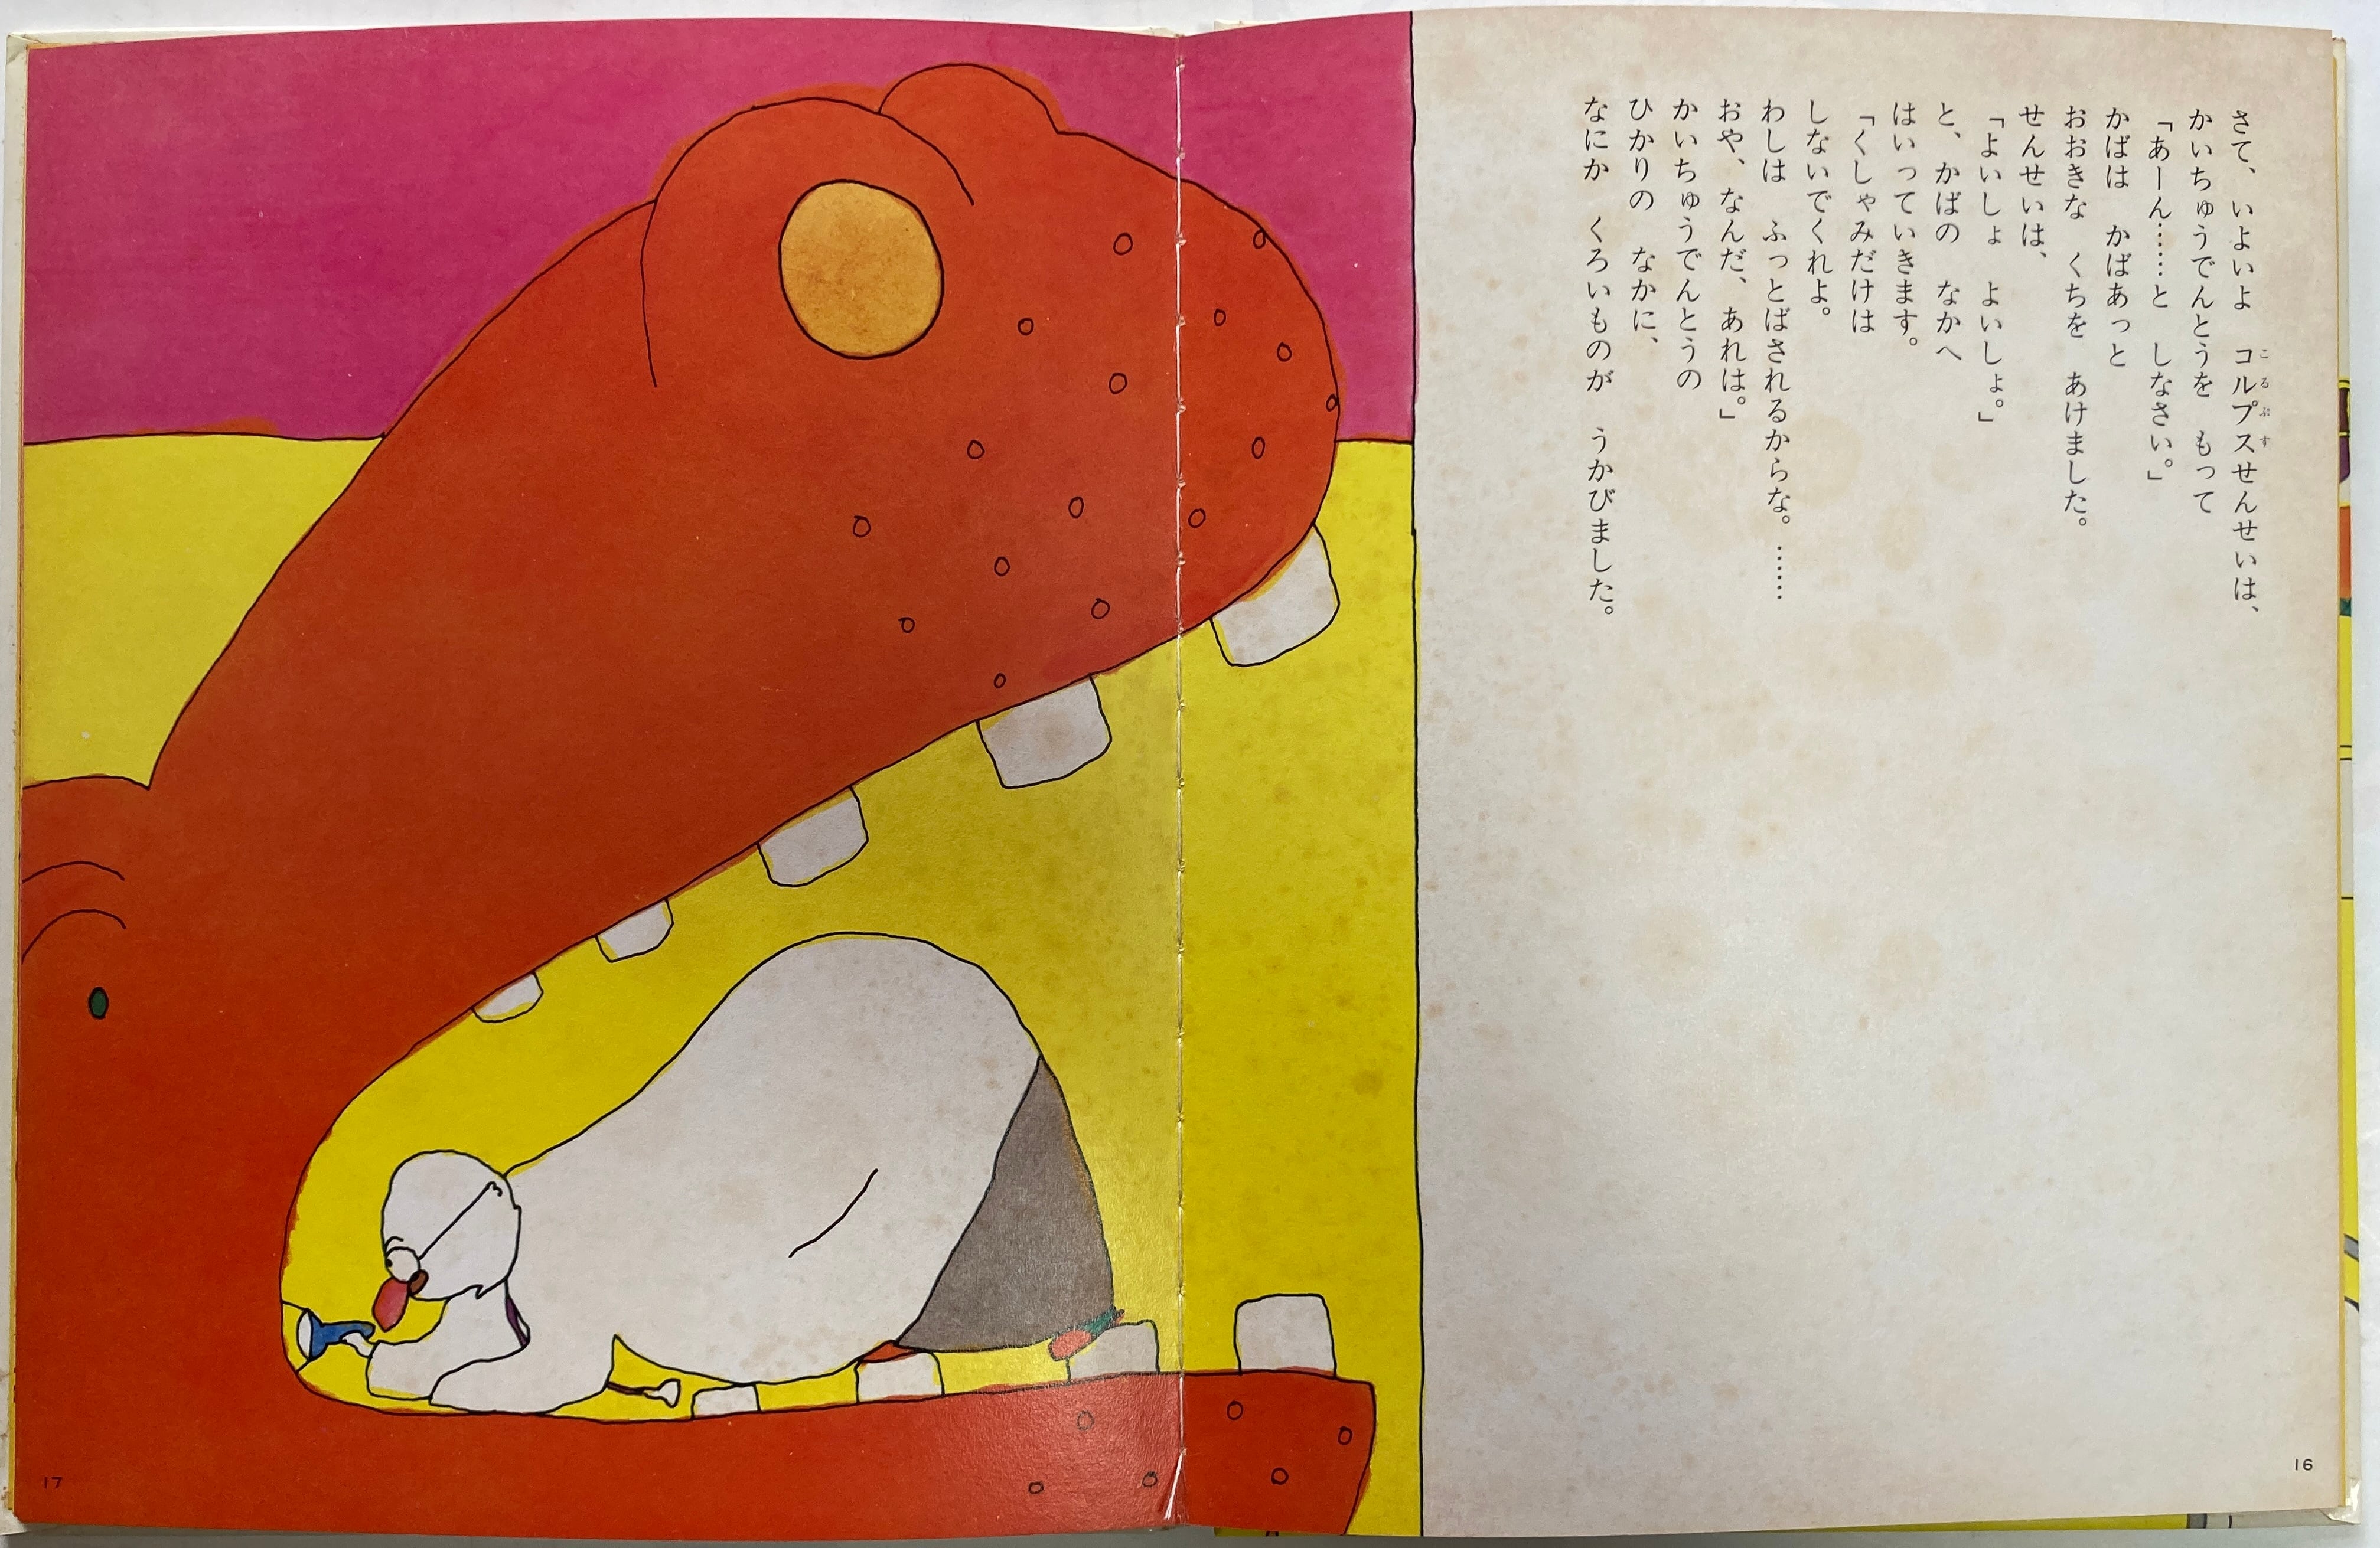 さて、いよいよ　コルプスせんせいは、
こるぷす
かいちゅうでんとうを　もって
「あーん……と　しなさい。」
かばは　かばあっと
おおきな　くちを　あけました。
せんせいは、
「よいしょ　よいしょ。」
と、かばの　なかへ
はいっていきます。
「くしゃみだけは
しないでくれよ。
わしは　ふっとばされるからな。……
おや、なんだ、あれは。」
かいちゅうでんとうの
ひかりの　なかに、
なにか　くろいものが　うかびました。
16
17